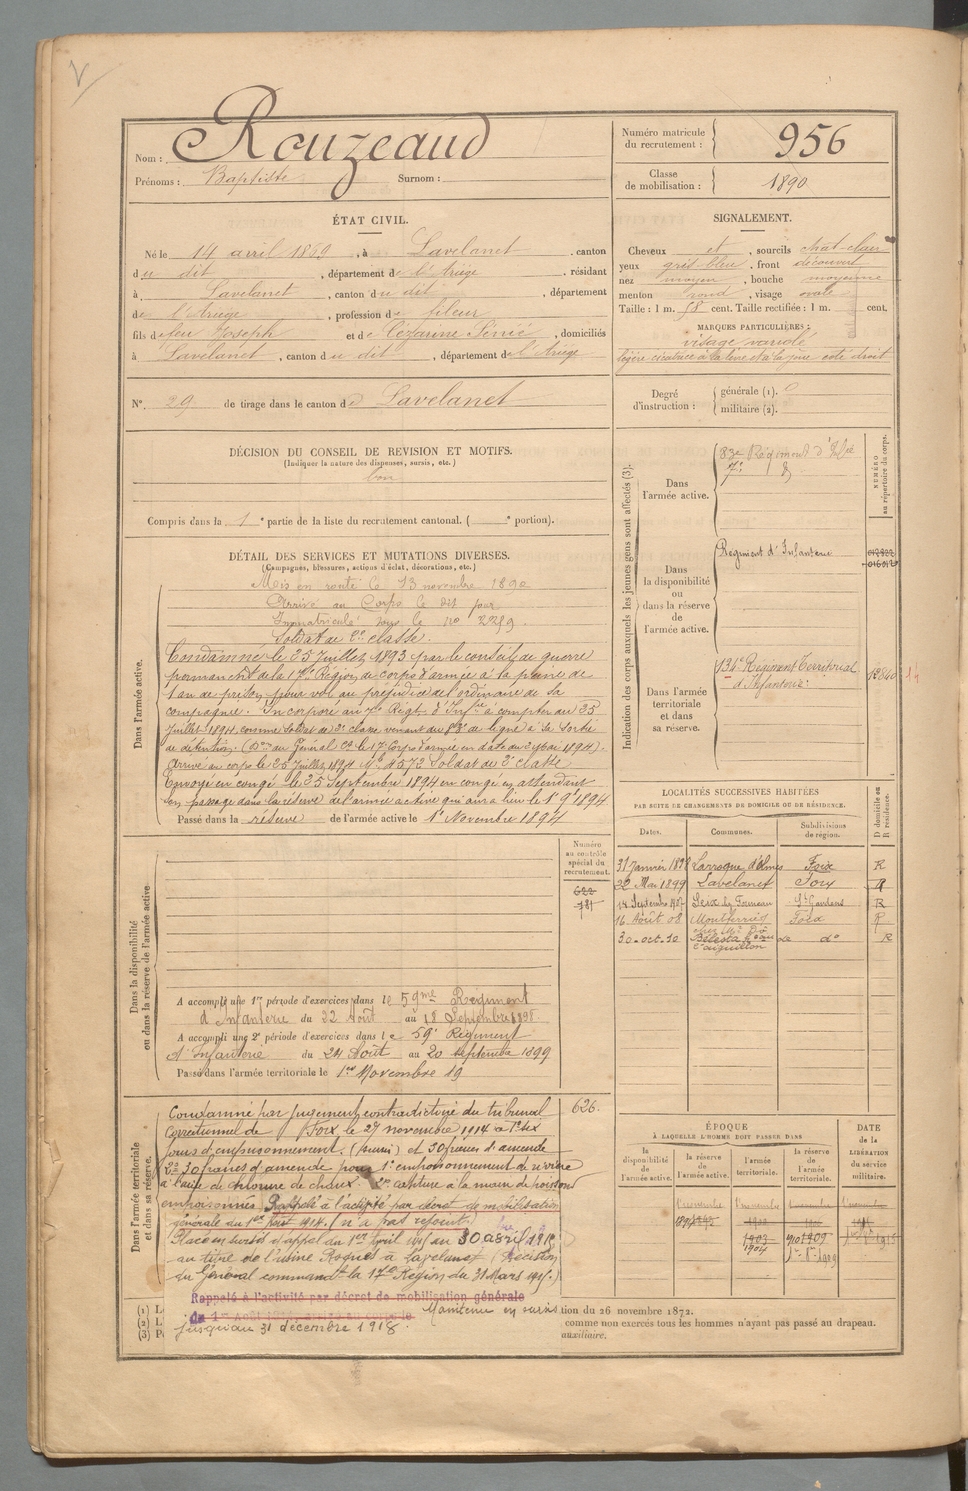 Nom : Rouzeaud
Prénoms : Baptiste Surnom :
Numéro matricule du recrutement : 956
Classe de mobilisation : 1890
ÉTAT CIVIL.
Né le 14 avril 1869, à Lavelanet, canton
du dit, département de l'Ariège, résidant
à Lavelanet, canton du dit, département
de l'Ariège, profession de fileur
fils de feu Joseph et de Cézarine Sénié, domiciliés
à Lavelanet, canton du dit, département de l'Ariège
N° 29 de tirage dans le canton de Lavelanet
SIGNALEMENT.
Cheveux et, sourcils chat-clair
yeux gris-bleu, front découvert
nez moyen, bouche moyenne
menton rond, visage ovale
Taille : 1 m. 58 cent. Taille rectifiée : 1 m. cent.
MARQUES PARTICULIÈRES :
visage variolé
légère cicatrice à la joue côté droit
Degré d'instruction : générale (1).
militaire (2).
DÉCISION DU CONSEIL DE REVISION ET MOTIFS.
(Indiquer la nature des dispenses, sursis, etc.)
bon
Compris dans la 1e partie de la liste du recrutement cantonal. ( e portion).
DÉTAIL DES SERVICES ET MUTATIONS DIVERSES.
(Campagnes, blessures, actions d'éclat, décorations, etc.)
Dans l'armée active.
Mis en route le 13 novembre 1890
Arrivé au Corps le dit jour
Immatriculé sous le no 2289
Soldat de 2e classe.
Condamné le 25 Juillet 1893 par le conseil de guerre
permanent de la 17e Région de corps d'armée à la peine de
1 an de prison pour vol au préjudice de l'ordinaire de sa
compagnie. Incorporé au 7e Régt d'Infie à compter du 25
juillet 1894 comme soldat de 2e classe venant du 83e de ligne à sa sortie
de détention. (Don du Général Ct le 17e Corps d'armée en date du 2 Mai 1894).
Arrivé au corps le 25 Juillet 1894 No 4572 Soldat de 2e classe
Envoyé en congé le 25 Septembre 1894 en congé en attendant
son passage dans la réserve de l'armée active qui aura lieu le 1er 9bre 1894
Passé dans la réserve de l'armée active le 1er Novembre 1894
Indication des corps auxquels les jeunes gens sont affectés (3).
NUMÉRO au répertoire du corps.
Dans l'armée active.
83e Régiment d'Infie
7e
Dans la disponibilité ou dans la réserve de l'armée active.
Régiment d'Infanterie
Dans l'armée territoriale et dans sa réserve.
134e Régiment Territorial
d'Infanterie
LOCALITÉS SUCCESSIVES HABITÉES
PAR SUITE DE CHANGEMENTS DE DOMICILE OU DE RÉSIDENCE.
Dates. Communes. Subdivisions de région. D domicile ou R résidence.
31 Janvier 189 Larroque d'Olmes Foix R
22 Mai 1899 Lavelanet Foix R
14 Septembre St Gaudens R
16 Août 08 Montferrier Foix R
30-oct-10 Bélesta do R
Dans la disponibilité ou dans la réserve de l'armée active
Numéro au contrôle spécial du recrutement.
622
A accompli une 1re période d'exercices dans le 59me Régiment
d'Infanterie du 22 Août au 18 Septembre 1898
A accompli une 2e période d'exercices dans le 59e Régiment
d'Infanterie du 24 Août au 20 septembre 1899
Passé dans l'armée territoriale le 1er Novembre 19
Dans l'armée territoriale et dans sa réserve.
626.
Condamné par jugement contradictoire du tribunal
correctionnel de Foix le 27 novembre 1914 à 1o six
jours d'emprisonnement. et 30 francs d'amende
2o 30 francs d'amende pour 1o empoisonnement de rivière
à l'aide de chlorure de chaux. 2o capture à la main de poissons
empoisonnés Rappelé à l'activité par décret de mobilisation
générale du 1er Août 1914. (n'a pas rejoint)
Placé en sursis d'appel du 1er avril 191 au 30 avril 1918
au titre de l'usine Roques à Lavelanet (Décision
du Général commandt la 17e Région du 31 Mars 191 .)
Rappelé à l'activité par décret de mobilisation générale
du 1er Août 1914,
Maintenu en sursis
jusqu'au 31 décembre 1918.
ÉPOQUE
À LAQUELLE L'HOMME DOIT PASSER DANS
la disponibilité de l'armée active. la réserve de l'armée active. l'armée territoriale. la réserve de l'armée territoriale.
DATE de la LIBÉRATION du service militaire.
1903
1904
1909
tion du 26 novembre 1872.
comme non exercés tous les hommes n'ayant pas passé au drapeau.
auxiliaire.